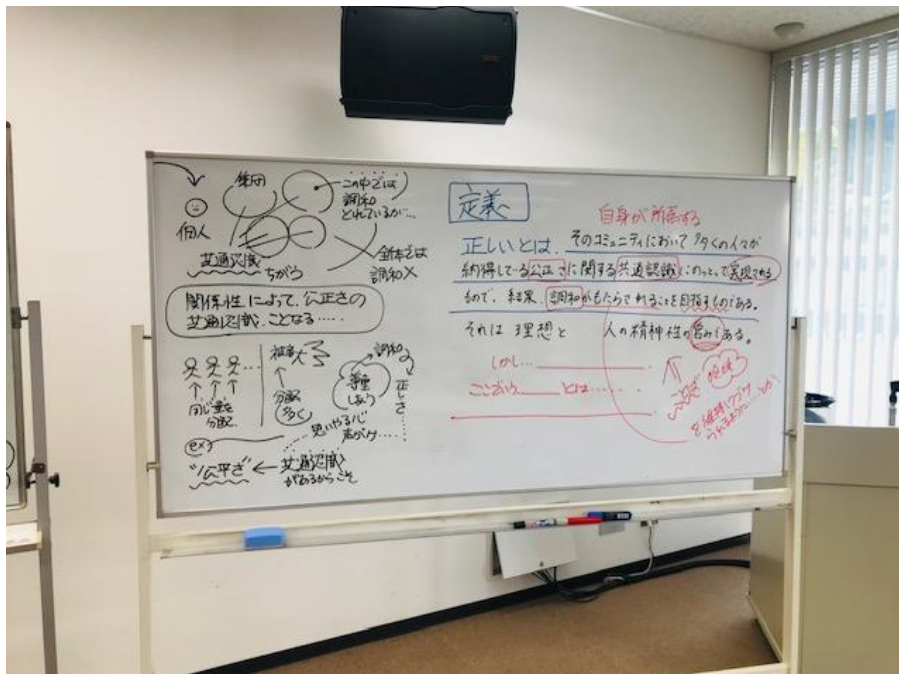 集団
個人
この中では
調和
とれているが…
全体では
調和×
共通認識
ちがう
関係性によって、公正さの
共通認識、ことなる……
同じ量を
分配
被害大
分配
多く
尊重
しあう
調和
正しさ
思いやる心
声がけ……
ex)
"公平さ" ← 共通認識
があるからこそ
定義へ
自身が所属する
正しいとは、そのコミュニティにおいて多くの人々が
納得している公正さに関する共通認識にのっとって実現される
もので、結果、調和がもたらされることを目指すものである。
それは理想と 人の精神性の営みである。
しかし
ここでいう とは……